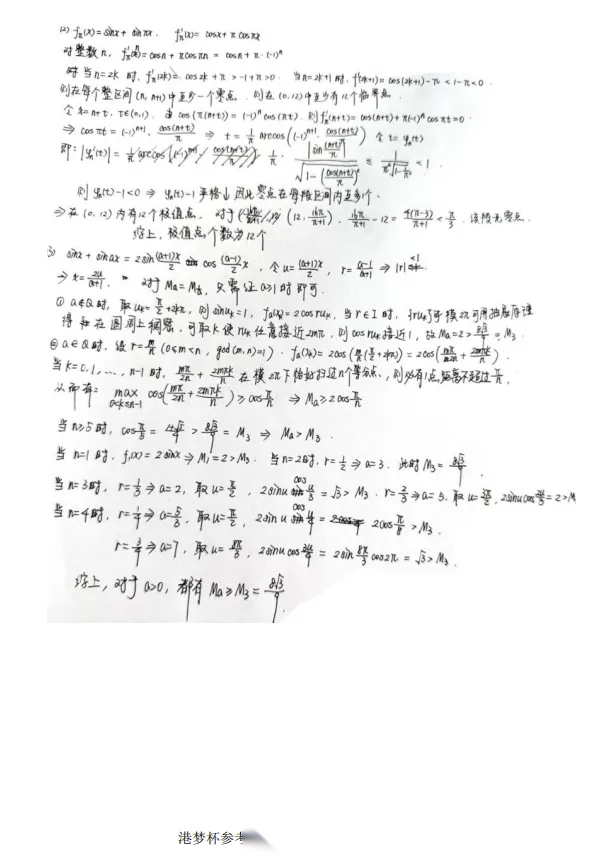 (2) f_π(x)=sinx+sinπx, f'_π(x)=cosx+πcosπx
对整数n, f'_π(n)=cosn+πcosπn=cosn+π·(-1)^n
时当n=2k时, f'_π(2k)=cos2k+π>-1+π>0. 当n=2k+1时, f'(2k+1)=cos(2k+1)-π<1-π<0.
则在每个整区间(n,n+1)中至少一个零点. 则在(0,12)中至少有12个临零点.
令x=n+t. t∈(0,1). 由cos(π(n+t))=(-1)^n cos(πt). 则f'_π(n+t)=cos(n+t)+π(-1)^n cosπt=0.
⇒ cosπt=(-1)^{n+1}·cos(n+t)/π ⇒ t=1/π arccos((-1)^{n+1}·cos(n+t)/π) 令t=φ_n(t)
即: |φ'_n(t)|= 1/π·|sin(n+t)/π|/√(1-(cos(n+t)/π)²) ≤ 1/(π²√(1-1/π²)) <1.
则φ'_n(t)-1<0 ⇒ φ_n(t)-t严格↓ 因此零点在每段区间内至多1个.
⇒在(0,12)内有12个极值点, 对于(12, 16π/(π+1)), 16π/(π+1)-12=4(π-3)/(π+1)<π/3. 该段无零点.
综上, 极值点个数为12个
3) sinx+sinax=2sin((a+1)x/2)cos((a-1)x/2), 令u=(a+1)x/2, r=(a-1)/(a+1) ⇒|r|<1
⇒x=2u/(a+1), 对于Ma=M_{1/a}, 只需证a≥1时即可.
① a∉Q时, 取u_k=π/2+2kπ, 则sinu_k=1, f_a(x_k)=2cosru_k. 当r∈I时, {ru_k}于模2π可用抽屉原理
得知在圆周上稠密, 可取k使ru_k任意接近2mπ, 则cosru_k接近1, 故Ma=2>8√3/9=M_3.
② a∈Q时, 设r=m/n (0≤m<n, gcd(m,n)=1). f_a(x_k)=2cos(m/n(π/2+2kπ))=2cos(mπ/2n+2mπk/n).
当k=0,1,…,n-1时, mπ/2n+2mπk/n在模2π下恰好扫过n个等分点, 则必有1点距离不超过π/n,
从而有: max_{0≤k≤n-1} cos(mπ/2n+2mπk/n)≥cosπ/n ⇒Ma≥2cosπ/n
当n≥5时, cosπ/5=>8√3/9=M_3 ⇒Ma>M_3.
当n=1时, f_1(x)=2sinx⇒M_1=2>M_3. 当n=2时, r=1/2⇒a=3. 此时M_3=8√3/9
当n=3时, r=1/3⇒a=2, 取u=π/2, 2sinu cos u/3=√3>M_3. r=2/3⇒a=5, 取u=, 2sinucos2u/3=2>M
当n=4时, r=1/4⇒a=5/3, 取u=π/2, 2sinu cos u/4=2cosπ/8>M_3.
r=3/4⇒a=7, 取u=8π/3, 2sinu cos3u/4=2sin8π/3cos2π=√3>M_3.
综上, 对于a>0, 都有Ma≥M_3=8√3/9.
港梦杯参考